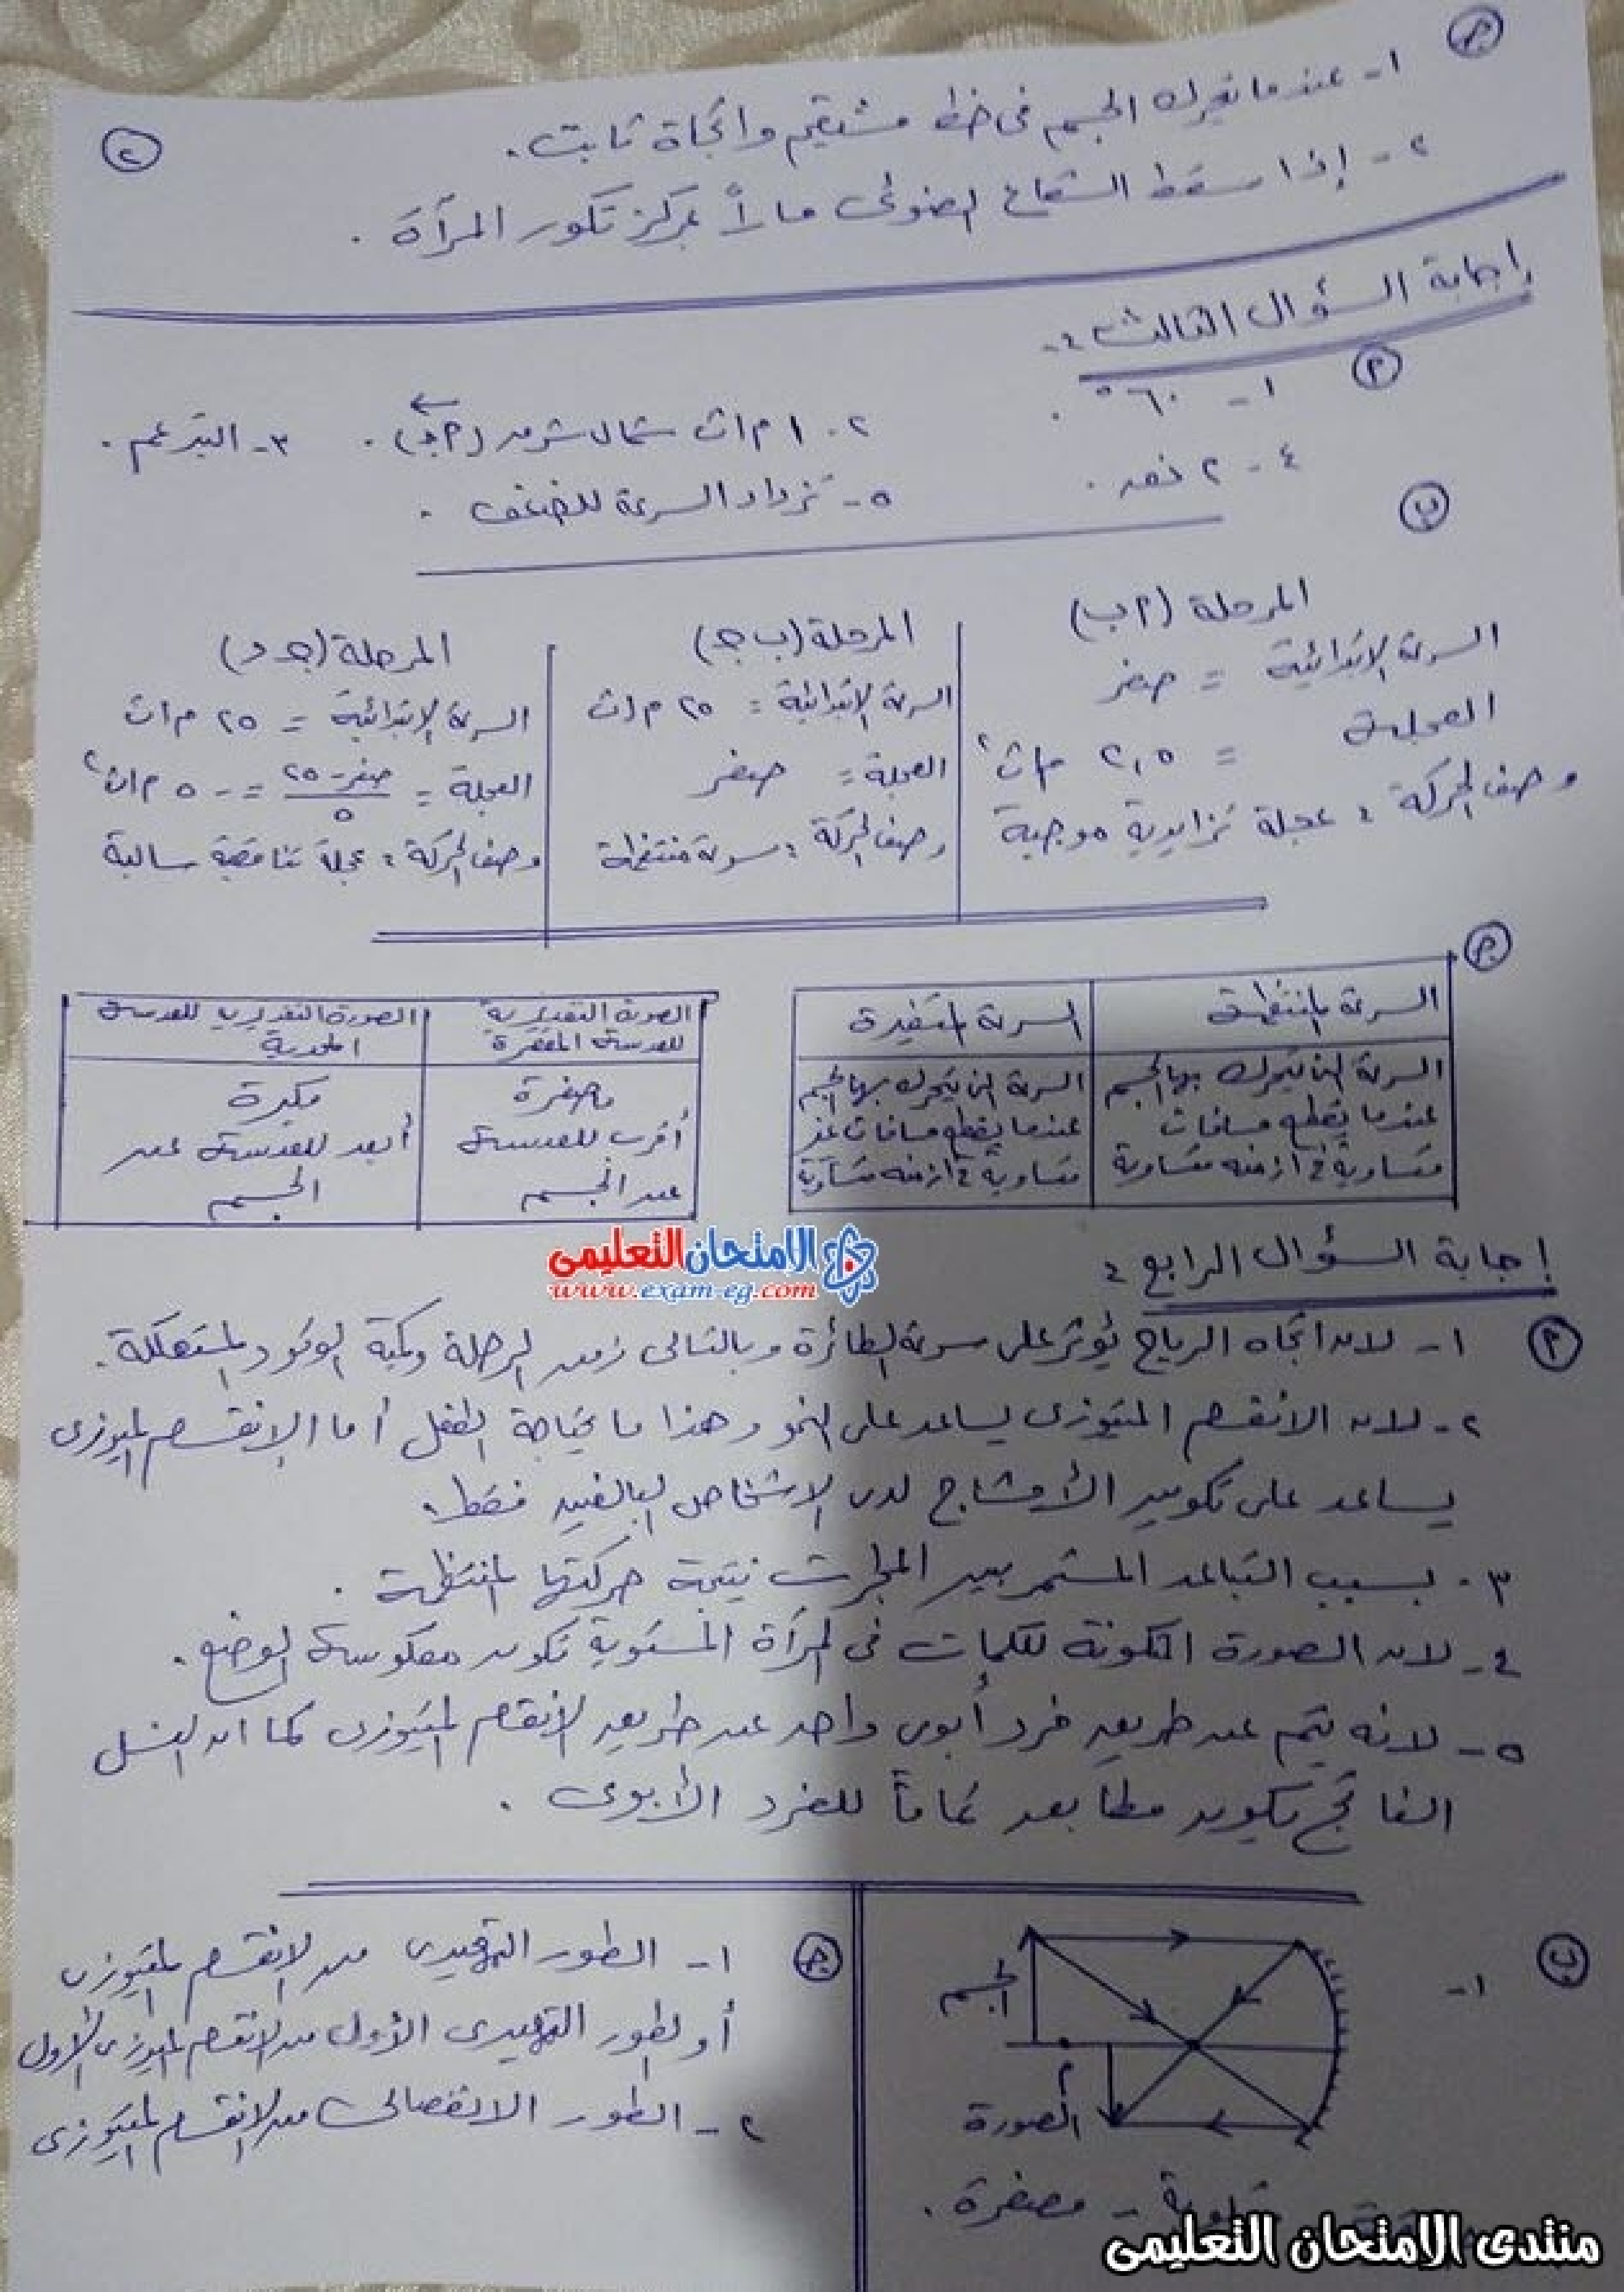 ج
٢
١- عندما يتحرك الجسم فى خط مستقيم واتجاة ثابت .
٢- إذا سقط الشعاع الضوئى ماراً بمركز تكور المرآة .
إجابة السؤال الثالث :-
أ
١- ٦٠° .
٢- ١ م/ث شمال شرق (أ جـ) .
٣- البرعم .
٤- ٢ نصر .
٥- تزداد السرعة للضعف .
ب
المرحلة (أ ب)
السرعة الابتدائية = صفر
العجلة = ٢,٥ م/ث٢
وصف الحركة : عجلة تزايدية موجبة
المرحلة (ب جـ)
السرعة الابتدائية = ٢٥ م/ث
العجلة = صفر
وصف الحركة : سرعة منتظمة
المرحلة (جـ د)
السرعة الابتدائية = ٢٥ م/ث
العجلة = صفر - ٢٥ / ٥ = - ٥ م/ث٢
وصف الحركة : عجلة تناقصية سالبة
ج
السرعة المنتظمة
السرعة المتغيرة
السرعة التى يتحرك بها الجسم
عندما يقطع مسافات
متساوية فى أزمنه متساوية
السرعة التى يتحرك بها الجسم
عندما يقطع مسافات غير
متساوية فى أزمنه متساوية
الصورة التقديرية
للعدسة المقعرة
الصورة التقديرية للعدسة
المحدبة
مصغرة
أقرب للعدسة
عن الجسم
مكبرة
أبعد للعدسة عن
الجسم
الامتحان التعليمى
www.exam-eg.com
إجابة السؤال الرابع :
أ
١- لان اتجاه الرياح يؤثر على سرعة الطائرة وبالتالى زمن الرحلة وكمية الوقود المستهلكة .
٢- لان الانقسام الميتوزى يساعد على النمو وهذا ما يحتاجة الطفل أما الإنقسام الميوزى
يساعد على تكوين الأمشاج لدى الاشخاص البالغين فقط .
٣- بسبب التباعد المستمر بين المجرات نتيجة حركتها المنتظمة .
٤- لان الصورة المتكونة للكلمات فى المرآة المستوية تكون معكوسة الوضع .
٥- لانه يتم عن طريق فرد أبوى واحد عن طريق الانقسام الميتوزى كما ان النسل
الناتج يكون مطابق تماماً للفرد الأبوى .
ب
١-
الجسم
الصورة
مقلوبة - مصغرة .
ج
١- الطور التمهيدى من الانقسام الميتوزى
أو الطور التمهيدى الأول من الانقسام الميوزى الأول
٢- الطور الانفصالى من الانقسام الميتوزى
منتدى الامتحان التعليمى